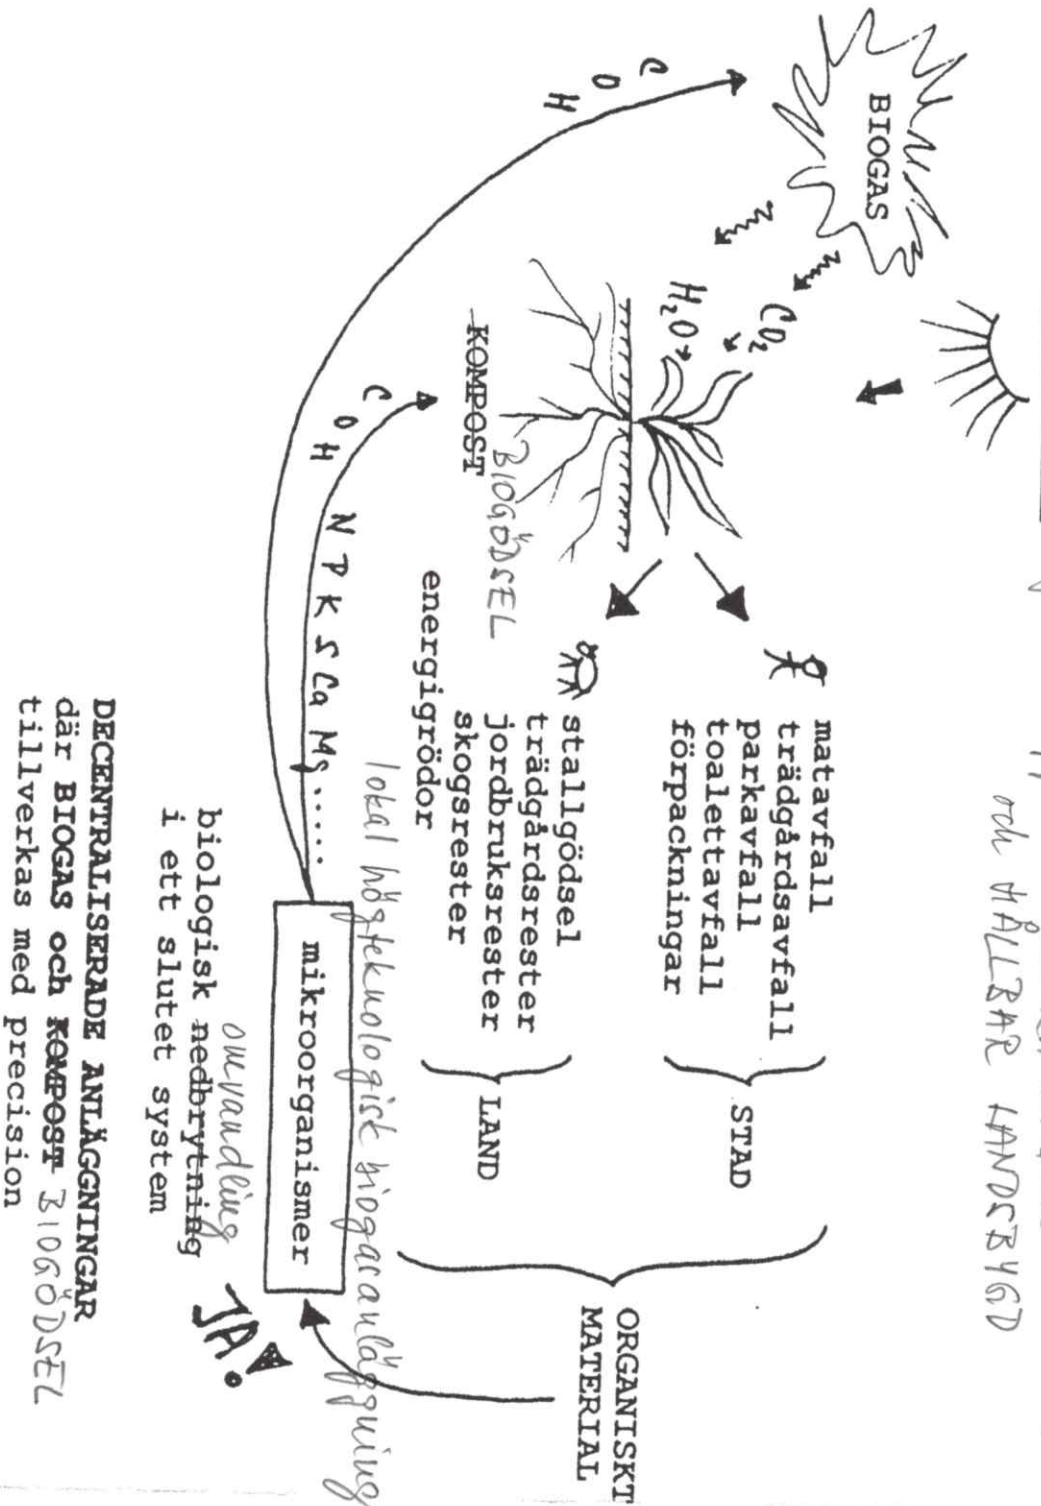 och HÅLLBAR LANDSBYGD
BIOGAS
CO₂
H₂O
C O H
KOMPOST
BIOGÖDSEL
C O H N P K S Ca Mg.....
matavfall
trädgårdsavfall
parkavfall
toalettavfall
förpackningar
STAD
stallgödsel
trädgårdsrester
jordbruksrester
skogsrester
energigrödor
LAND
ORGANISKT
MATERIAL
lokal högteknologisk biogasanläggning
mikroorganismer
JA!
omvandling
biologisk nedbrytning
i ett slutet system
DECENTRALISERADE ANLÄGGNINGAR
där BIOGAS och KOMPOST BIOGÖDSEL
tillverkas med precision